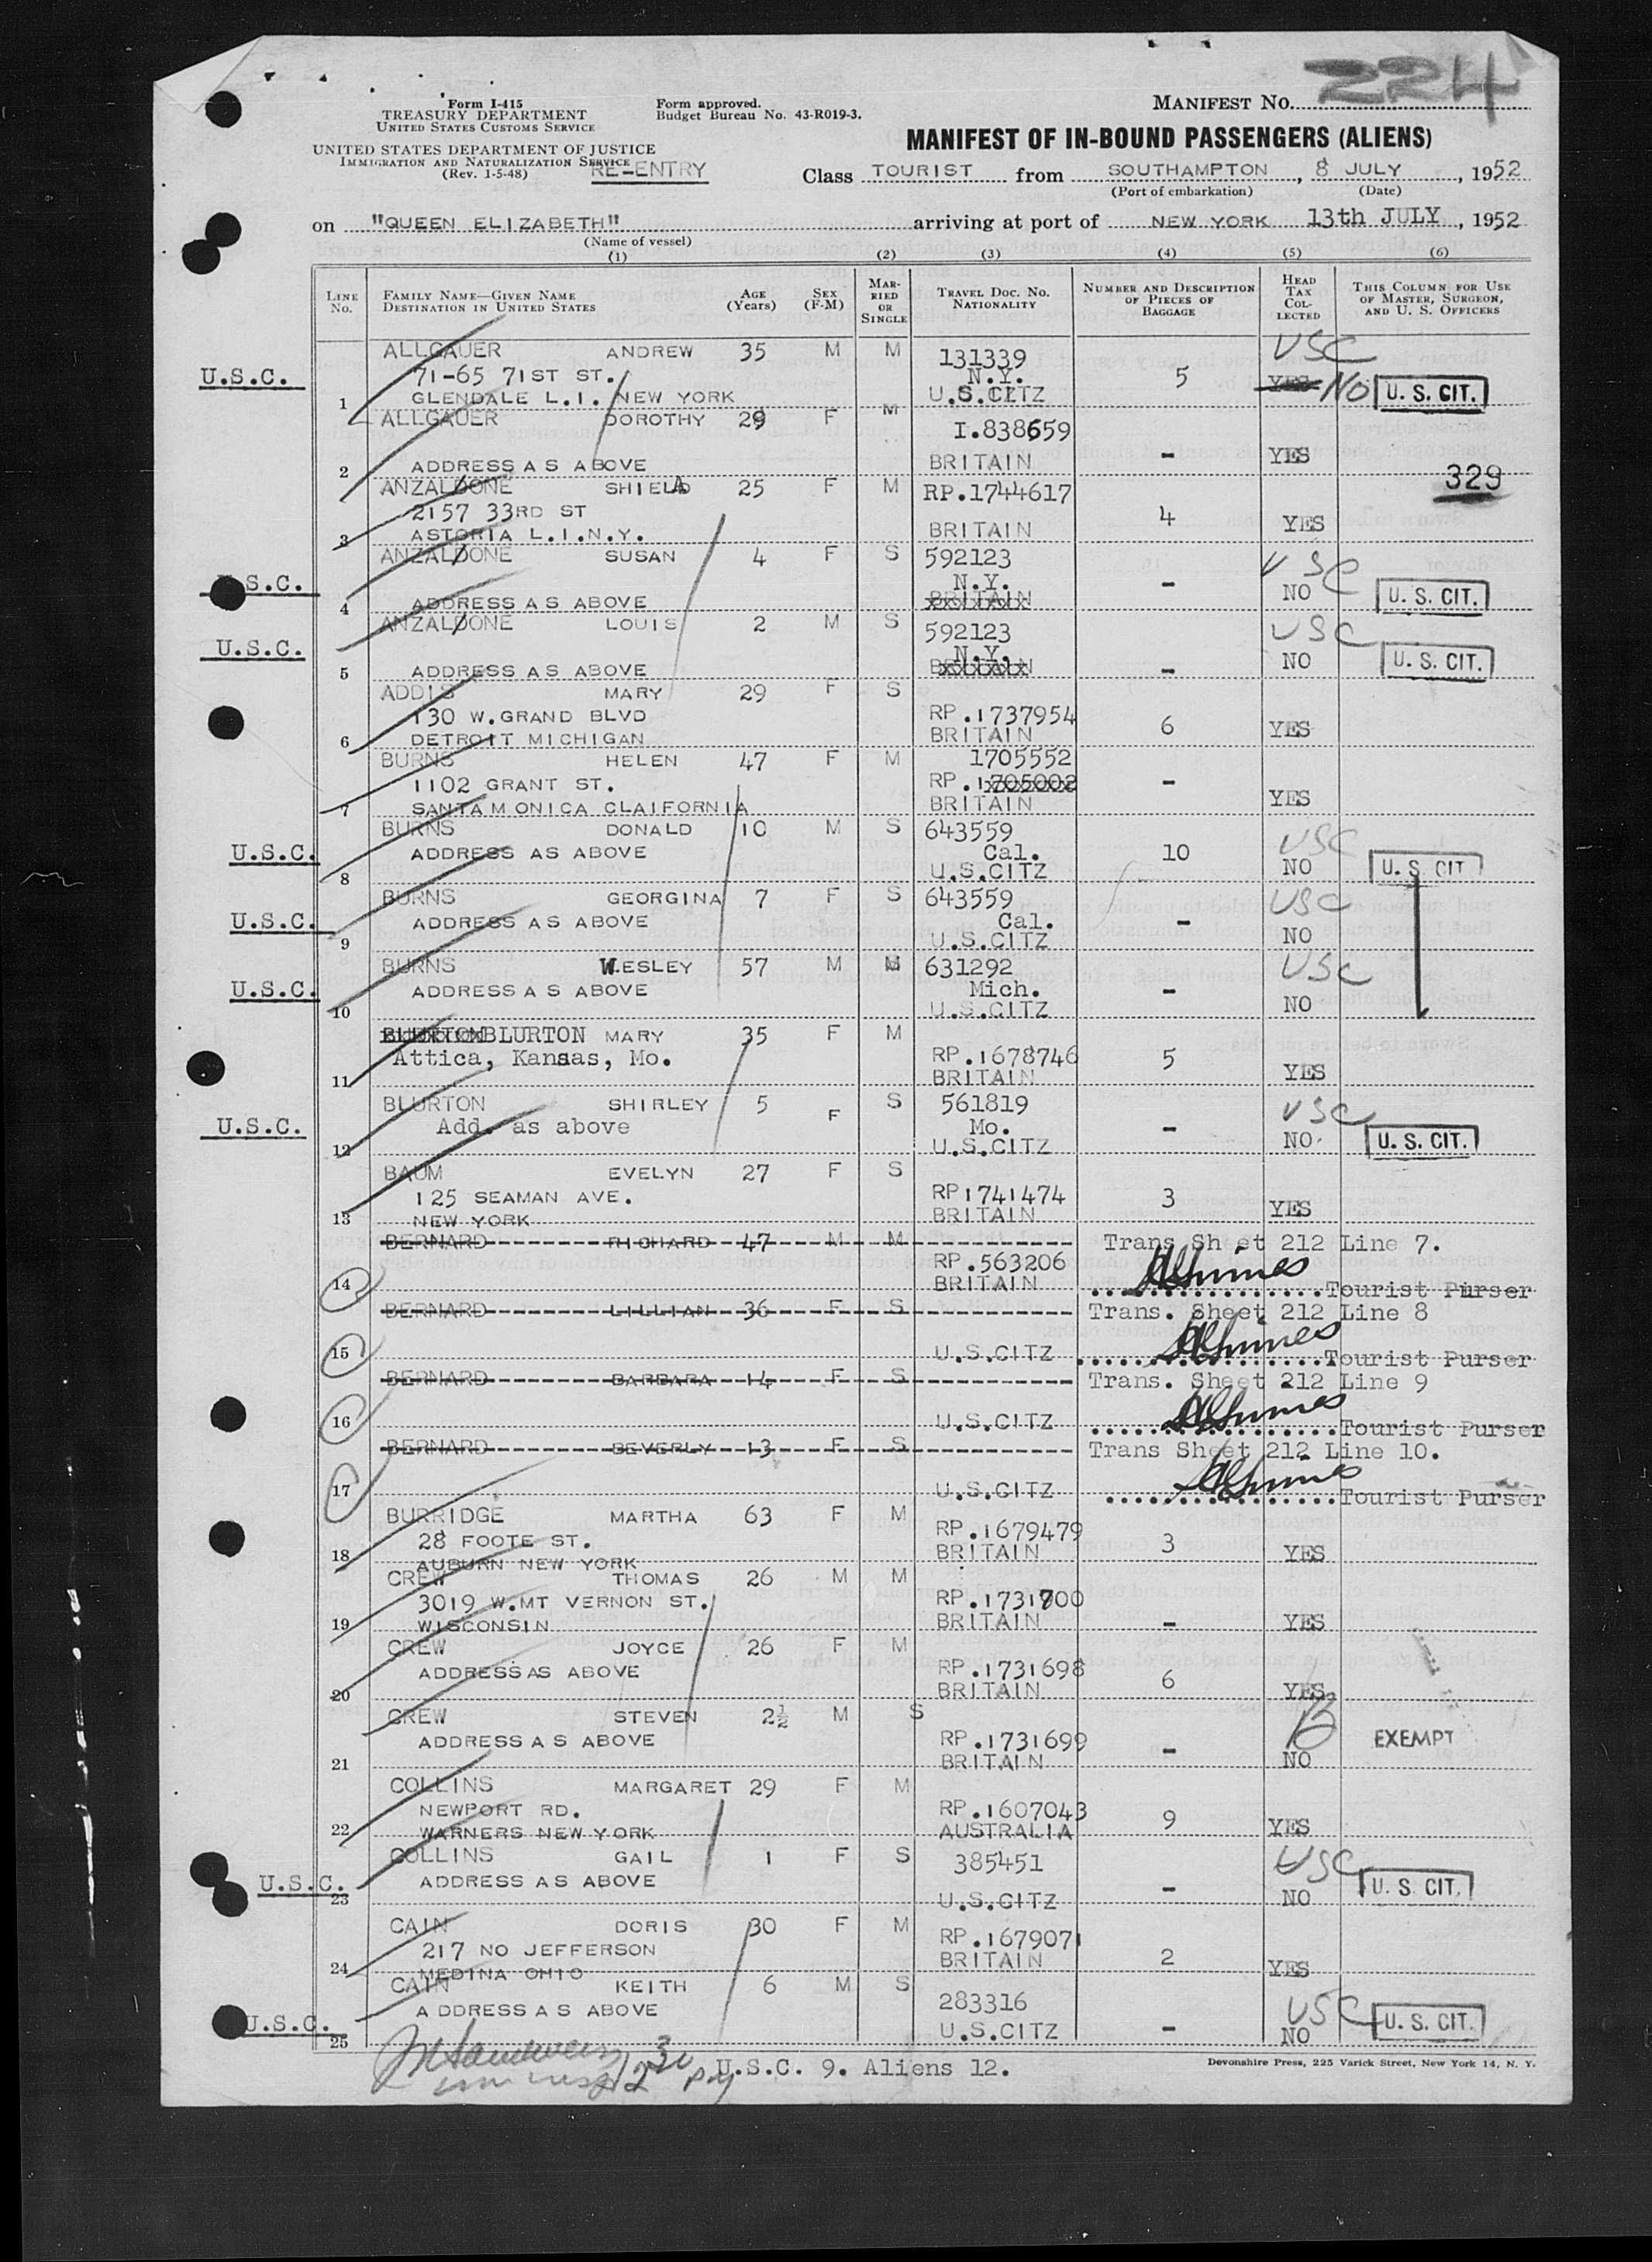 MANIFEST NO. 224
Form I-415
TREASURY DEPARTMENT
UNITED STATES CUSTOMS SERVICE
Form approved.
Budget Bureau No. 43-R019-3.
MANIFEST OF IN-BOUND PASSENGERS (ALIENS)
UNITED STATES DEPARTMENT OF JUSTICE
IMMIGRATION AND NATURALIZATION SERVICE
(Rev. 1-5-48)
RE-ENTRY
Class TOURIST from SOUTHAMPTON, 8 JULY, 1952
(Port of embarkation) (Date)
on "QUEEN ELIZABETH" arriving at port of NEW YORK 13th JULY, 1952
(Name of vessel)
(1) (2) (3) (4) (5) (6)
LINE No. FAMILY NAME—GIVEN NAME DESTINATION IN UNITED STATES AGE (Years) SEX (F-M) MARRIED OR SINGLE TRAVEL DOC. NO. NATIONALITY NUMBER AND DESCRIPTION OF PIECES OF BAGGAGE HEAD TAX COLLECTED THIS COLUMN FOR USE OF MASTER, SURGEON, AND U. S. OFFICERS
ALLGAUER ANDREW 35 M M 131339 USC
U.S.C. 71-65 71ST ST. N.Y. 5 YES NO U. S. CIT.
1 GLENDALE L.I. NEW YORK U.S.CITZ
ALLGAUER DOROTHY 29 F M I.838659
2 ADDRESS AS ABOVE BRITAIN - YES
329
ANZALDONE SHIELA 25 F M RP.1744617
2157 33RD ST 4
3 ASTORIA L.I.N.Y. BRITAIN YES
ANZALDONE SUSAN 4 F S 592123 USC
U.S.C. N.Y. - NO U. S. CIT.
4 ADDRESS AS ABOVE BRITAIN
ANZALDONE LOUIS 2 M S 592123 USC
U.S.C. N.Y. NO U. S. CIT.
5 ADDRESS AS ABOVE BRITAIN -
ADDIS MARY 29 F S
130 W.GRAND BLVD RP.1737954
6 DETROIT MICHIGAN BRITAIN 6 YES
BURNS HELEN 47 F M 1705552
1102 GRANT ST. RP.1705002 -
7 SANTA MONICA CLAIFORNIA BRITAIN YES
BURNS DONALD 10 M S 643559 USC
U.S.C. ADDRESS AS ABOVE Cal. 10
8 U.S.CITZ NO U. S. CIT
BURNS GEORGINA 7 F S 643559 USC
U.S.C. ADDRESS AS ABOVE Cal. -
9 U.S.CITZ NO
BURNS WESLEY 57 M M 631292 USC
U.S.C. ADDRESS AS ABOVE Mich. -
10 U.S.CITZ NO
BLURTON MARY 35 F M
Attica, Kansas, Mo. RP.1678746 5
11 BRITAIN YES
BLURTON SHIRLEY 5 F S 561819 USC
U.S.C. Add. as above Mo. - NO U. S. CIT.
12 U.S.CITZ
BAUM EVELYN 27 F S
125 SEAMAN AVE. RP1741474 3
13 NEW YORK BRITAIN YES
BERNARD RICHARD 47 M M Trans Sheet 212 Line 7.
RP.563206
14 BRITAIN Tourist Purser
BERNARD LILLIAN 36 F S Trans. Sheet 212 Line 8
15 U.S.CITZ Tourist Purser
BERNARD BARBARA 14 F S Trans. Sheet 212 Line 9
16 U.S.CITZ Tourist Purser
BERNARD BEVERLY 13 F S Trans Sheet 212 Line 10.
17 U.S.CITZ Tourist Purser
BURRIDGE MARTHA 63 F M
28 FOOTE ST. RP.1679479 3
18 AUBURN NEW YORK BRITAIN YES
CREW THOMAS 26 M M
3019 W.MT VERNON ST. RP.1731700
19 WISCONSIN BRITAIN - YES
CREW JOYCE 26 F M
ADDRESS AS ABOVE RP.1731698 6
20 BRITAIN YES
CREW STEVEN 2½ M S
ADDRESS AS ABOVE RP.1731699 - EXEMPT
21 BRITAIN NO
COLLINS MARGARET 29 F M
NEWPORT RD. RP.1607043 9
22 WARNERS NEW YORK AUSTRALIA YES
COLLINS GAIL 1 F S 385451 USC
U.S.C. ADDRESS AS ABOVE - U. S. CIT.
23 U.S.CITZ NO
CAIN DORIS 30 F M
217 NO JEFFERSON RP.1679071
24 MEDINA OHIO BRITAIN 2 YES
CAIN KEITH 6 M S 283316 USC
U.S.C. ADDRESS AS ABOVE U.S.CITZ - NO U. S. CIT.
25
U.S.C. 9. Aliens 12.
Devonshire Press, 225 Varick Street, New York 14, N. Y.